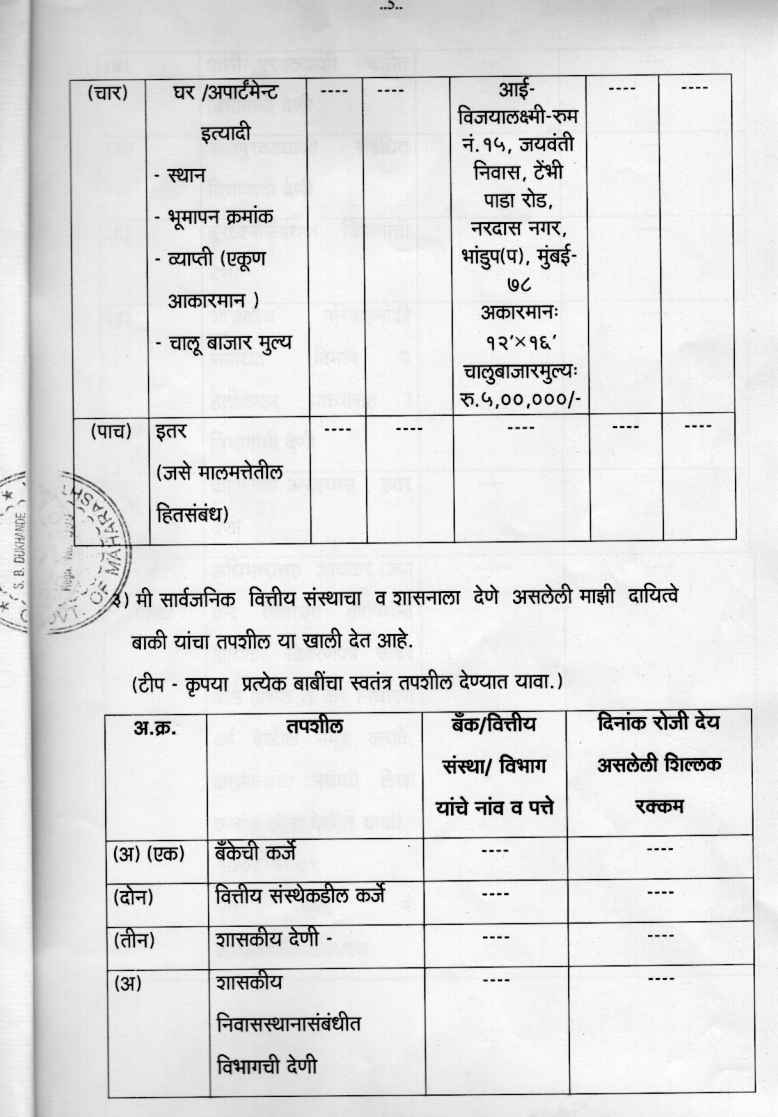 ..5..
(चार) घर /अपार्टमेन्ट ---- ---- आई- ---- ----
इत्यादी विजयालक्ष्मी-रुम
नं.१५, जयवंती
- स्थान निवास, टेंभी
- भूमापन क्रमांक पाडा रोड,
नरदास नगर,
- व्याप्ती (एकूण भांडुप(प), मुंबई-
आकारमान ) ७८
अकारमानः
- चालू बाजार मुल्य १२'×१६'
चालुबाजारमुल्यः
रु.५,००,०००/-
(पाच) इतर ---- ---- ---- ---- ----
(जसे मालमत्तेतील
हितसंबंध)
S. B. DUKHANDE
MAHARASHT
GOVT. OF
३) मी सार्वजनिक वित्तीय संस्थाचा व शासनाला देणे असलेली माझी दायित्वे
बाकी यांचा तपशील या खाली देत आहे.
(टीप - कृपया प्रत्येक बाबींचा स्वतंत्र तपशील देण्यात यावा.)
अ.क्र. तपशील बँक/वित्तीय दिनांक रोजी देय
संस्था/ विभाग असलेली शिल्लक
यांचे नांव व पत्ते रक्कम
(अ) (एक) बँकेची कर्जे ---- ----
(दोन) वित्तीय संस्थेकडील कर्जे ---- ----
(तीन) शासकीय देणी - ---- ----
(अ) शासकीय ---- ----
निवासस्थानासंबंधीत
विभागची देणी